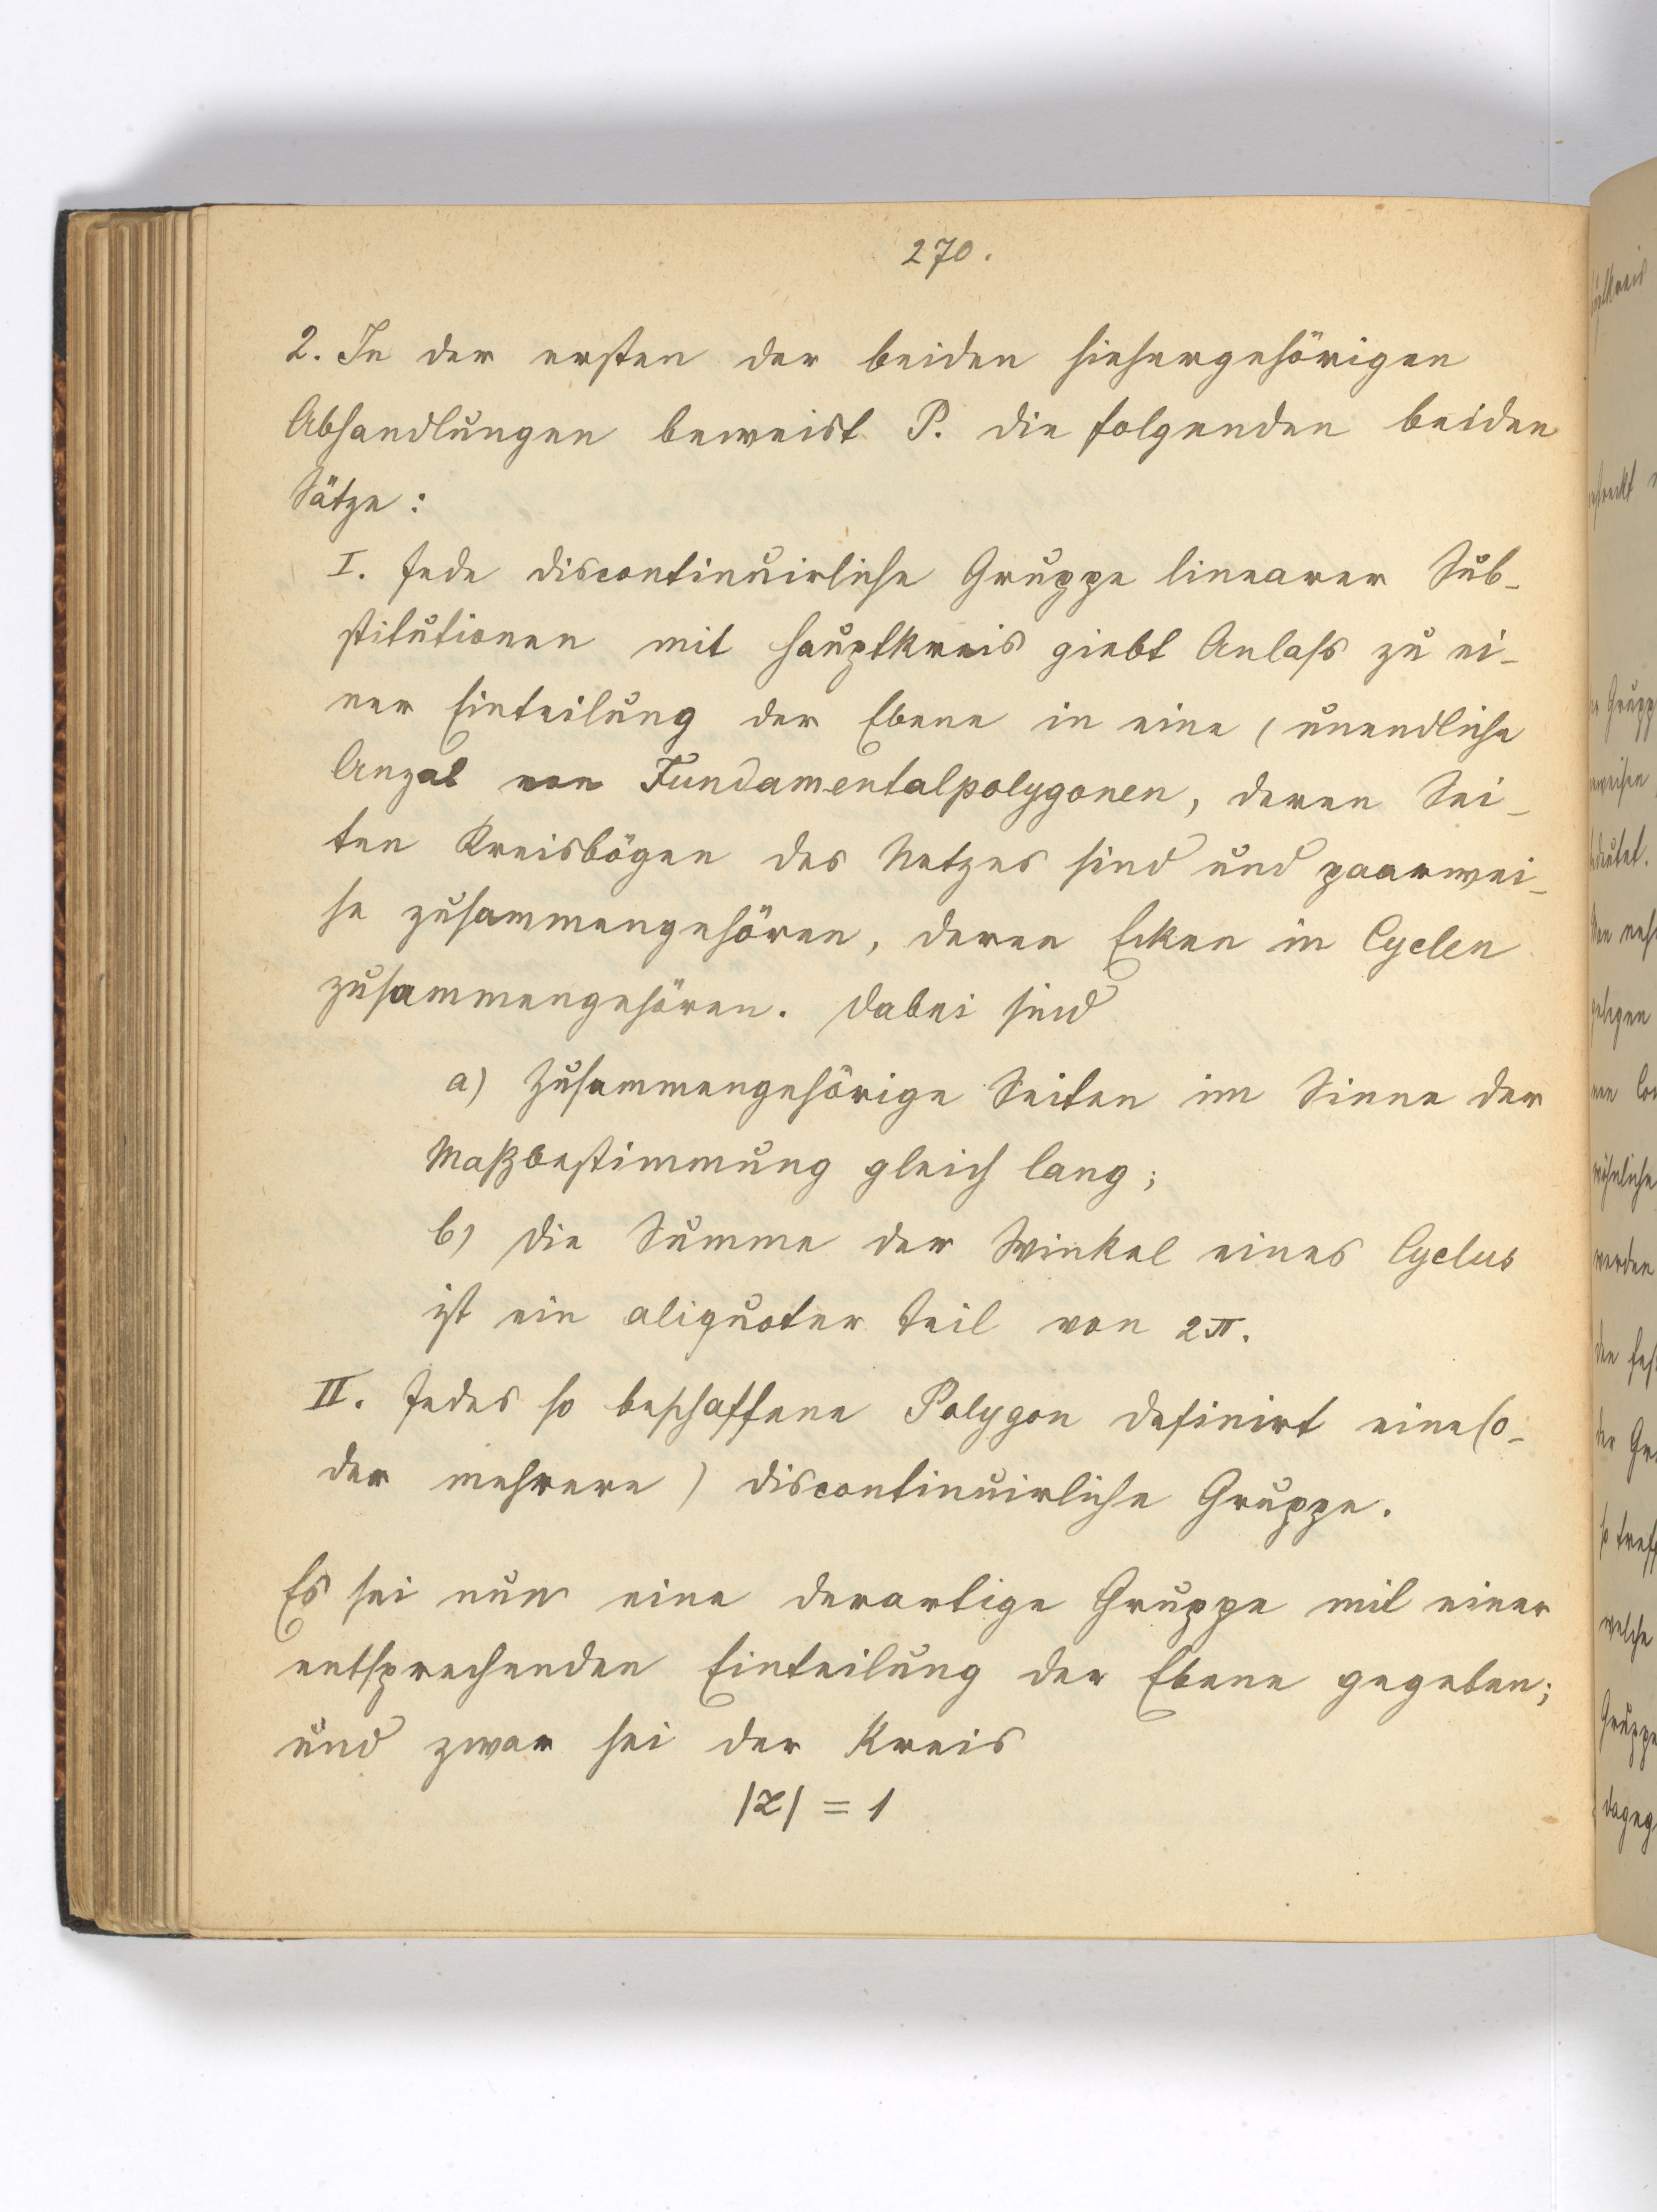 270.
2. In der ersten der beiden hiehergehörigen
Abhandlungen beweist P. die folgenden beiden
Sätze:
I. Jede discontinuirliche Gruppe linearer Sub-
stitutionen mit Hauptkreis giebt Anlaß zu ei-
ner Einteilung der Ebene in eine (unendliche
Anzal von Fundamentalpolygonen, deren Sei-
ten Kreisbögen des Netzes sind und paarwei-
se zusammengehören, deren Ecken in Cyclen
zusammengehören. Dabei sind
a) Zusammengehörige Seiten im Sinne der
Maßbestimmung gleich lang;
b) Die Summe der Winkel eines Cyclus
ist ein aliquoter Teil von 2π.
II. Jedes so beschaffene Polygon definirt eine (o-
der mehrere) discontinuirliche Gruppe.
Es sei nun eine derartige Gruppe mit einer
entsprechenden Einteilung der Ebene gegeben;
und zwar sei der Kreis
|z| = 1